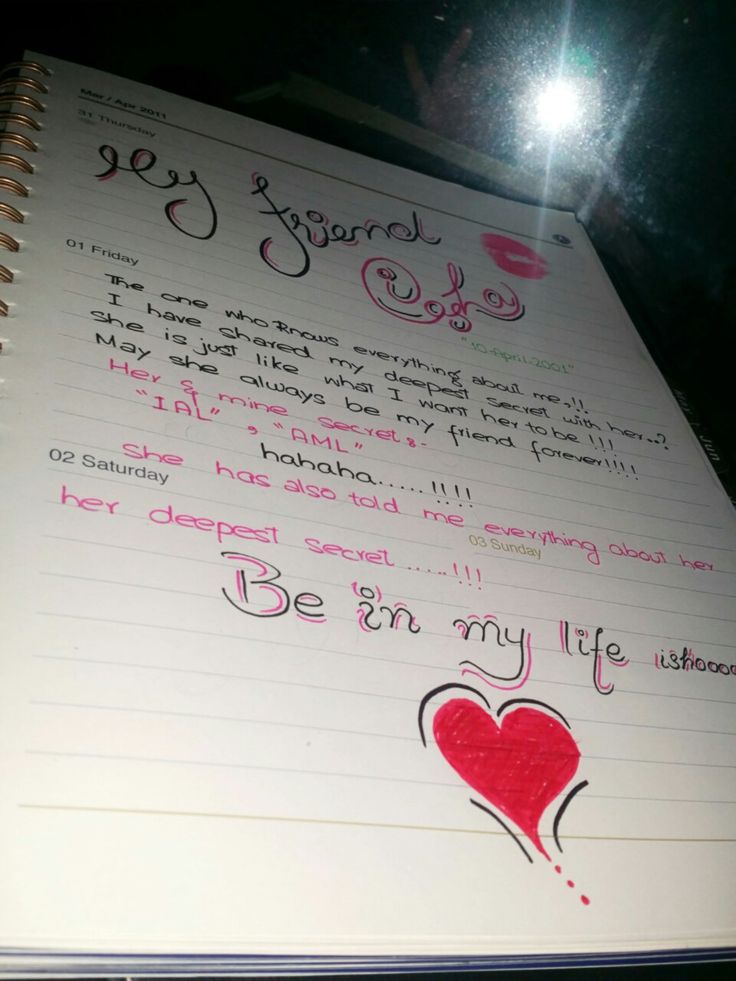 Mar / Apr 2011
31 Thursday
My friend
01 Friday
"10-April-2001"
The one who knows everything about me,!!
I have shared my deepest secret with her..?
She is just like what I want her to be !!!
May she always be my friend forever!!!!
Her & mine secret :-
"IAL" , "AML"
hahaha.....!!!!
02 Saturday
She has also told me everything about her
03 Sunday
her deepest secret .....!!!
Be in my life ishoooo